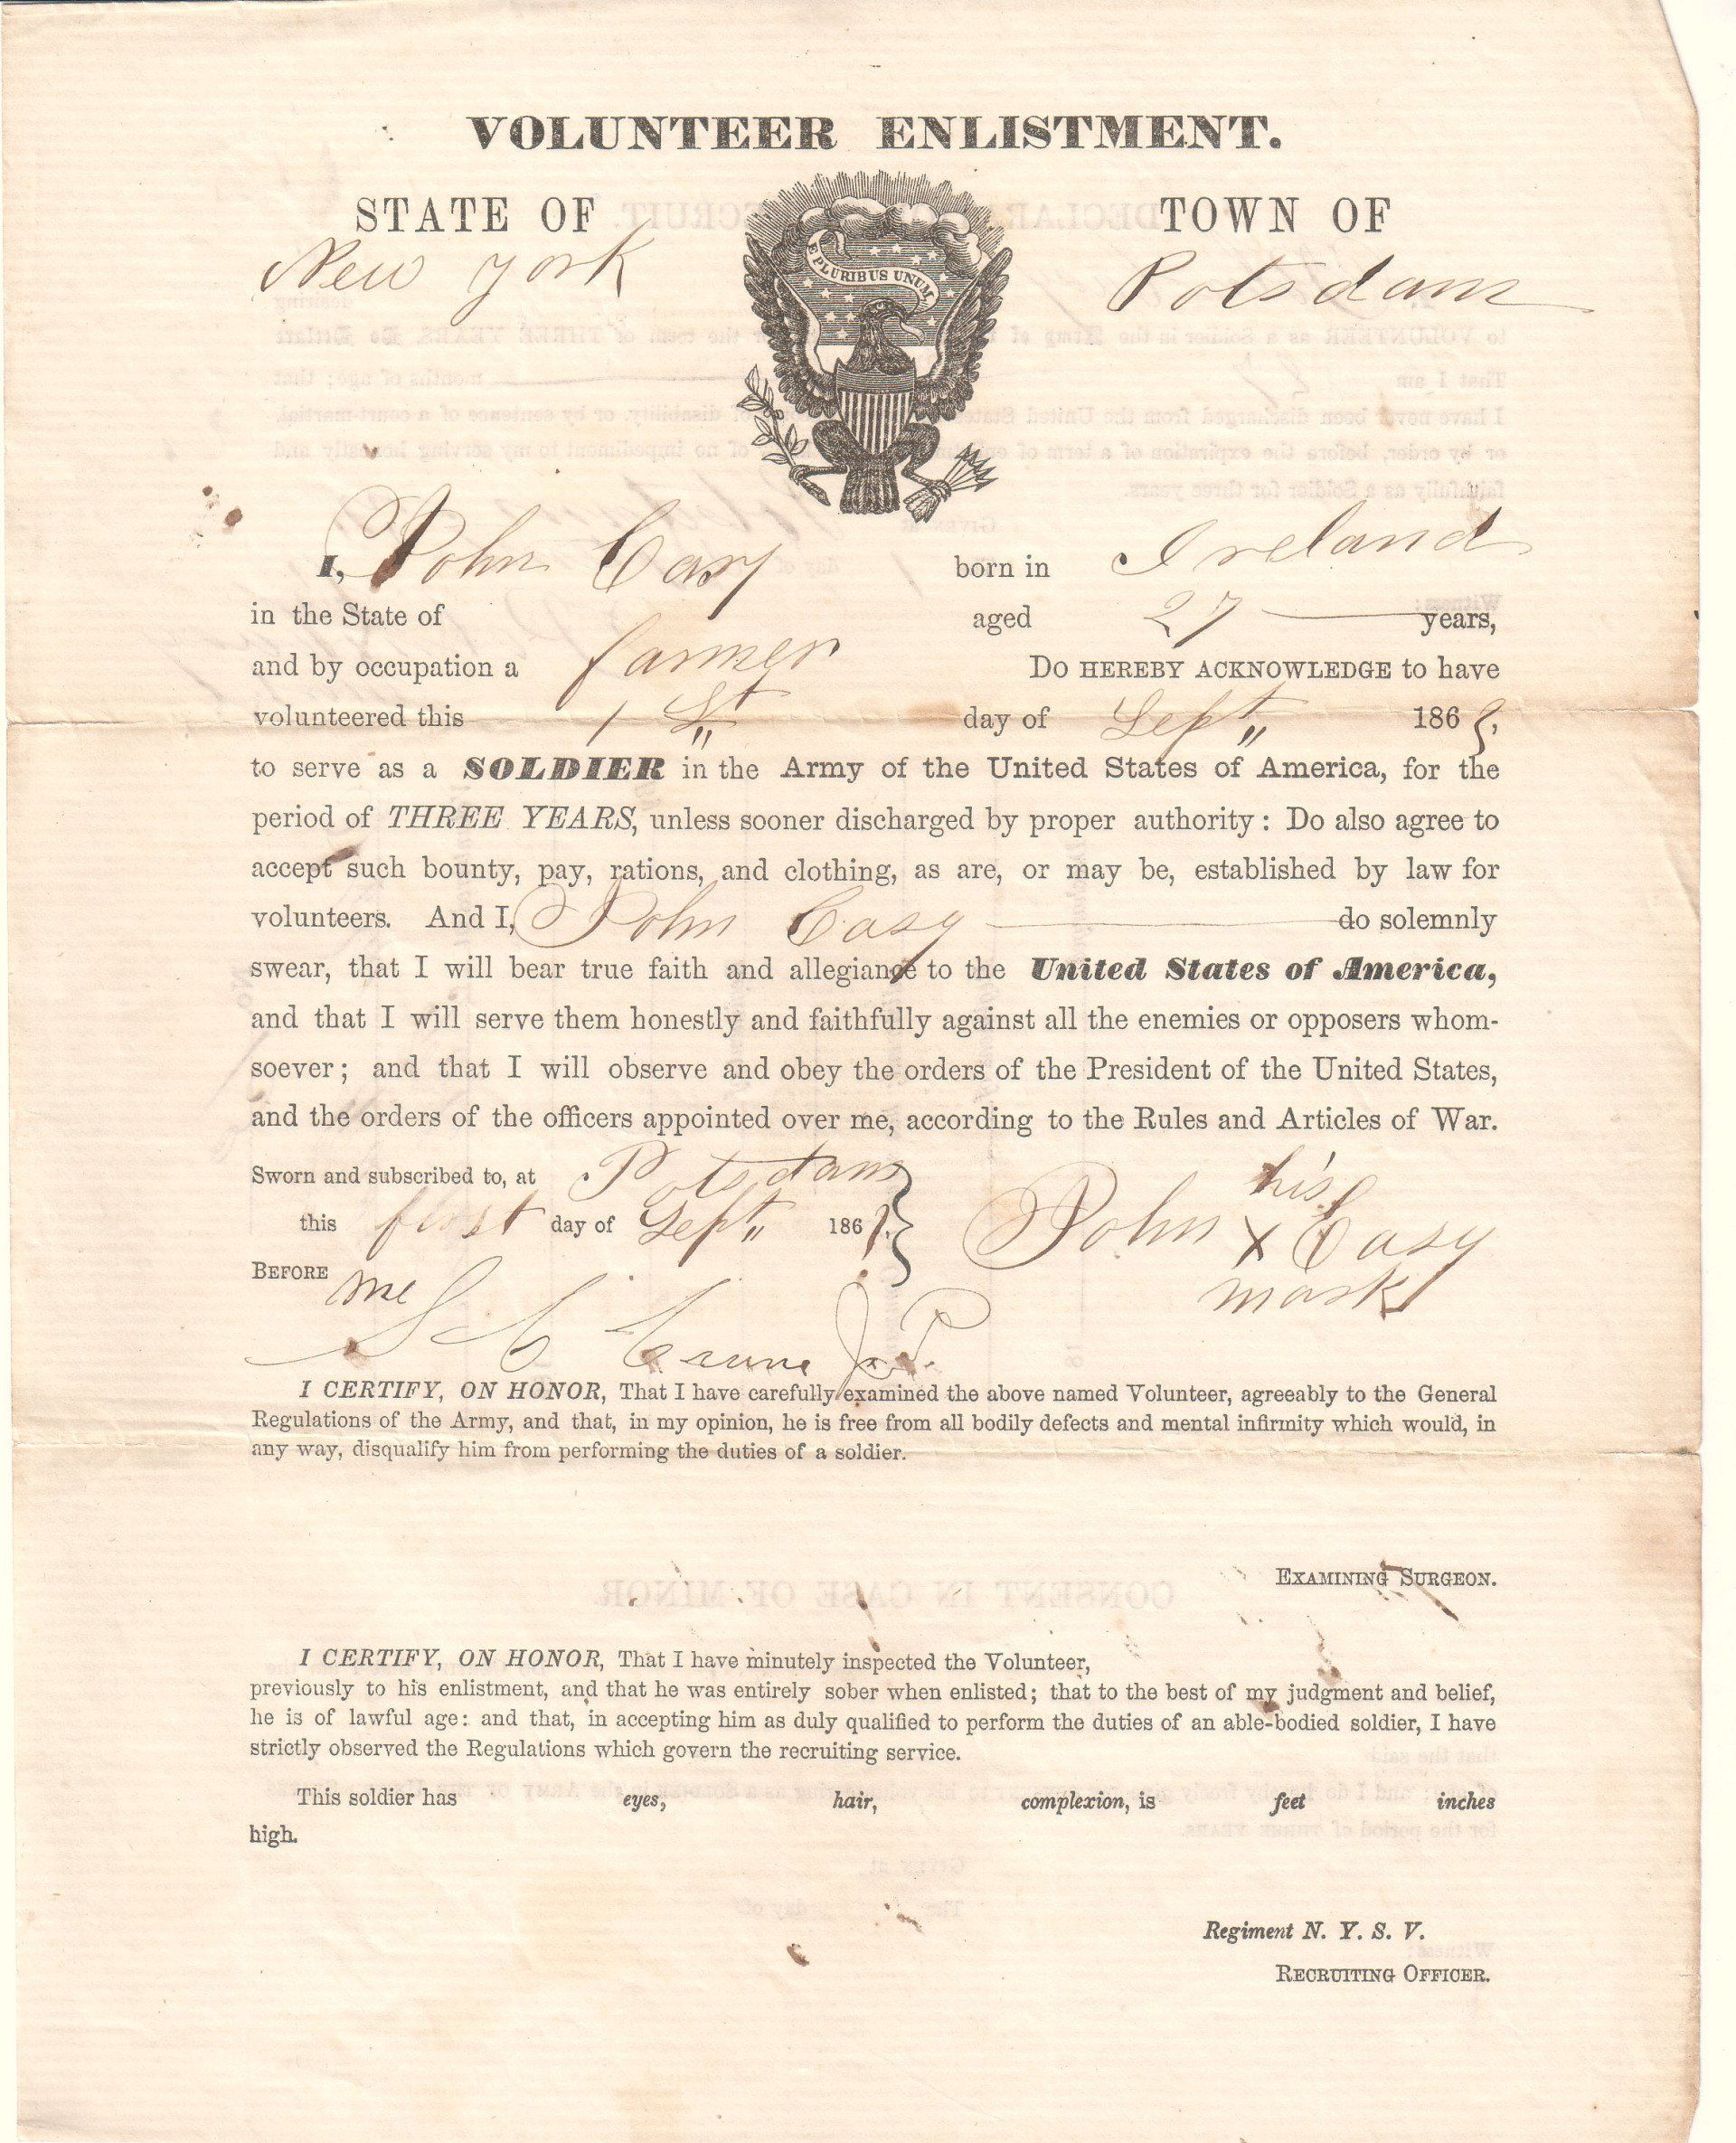 VOLUNTEER ENLISTMENT.
STATE OF TOWN OF
New York Potsdam
E PLURIBUS UNUM
I, John Casy born in Ireland
in the State of aged 27 years,
and by occupation a farmer Do HEREBY ACKNOWLEDGE to have
volunteered this 1 St day of Sept 186
to serve as a SOLDIER in the Army of the United States of America, for the
period of THREE YEARS, unless sooner discharged by proper authority: Do also agree to
accept such bounty, pay, rations, and clothing, as are, or may be, established by law for
volunteers. And I, John Casy do solemnly
swear, that I will bear true faith and allegiance to the United States of America,
and that I will serve them honestly and faithfully against all the enemies or opposers whom-
soever; and that I will observe and obey the orders of the President of the United States,
and the orders of the officers appointed over me, according to the Rules and Articles of War.
Sworn and subscribed to, at Potsdam
this first day of Sept 186
his
John X Casy
mark
BEFORE me
S C Crane J. P.
I CERTIFY, ON HONOR, That I have carefully examined the above named Volunteer, agreeably to the General
Regulations of the Army, and that, in my opinion, he is free from all bodily defects and mental infirmity which would, in
any way, disqualify him from performing the duties of a soldier.
EXAMINING SURGEON.
I CERTIFY, ON HONOR, That I have minutely inspected the Volunteer,
previously to his enlistment, and that he was entirely sober when enlisted; that to the best of my judgment and belief,
he is of lawful age: and that, in accepting him as duly qualified to perform the duties of an able-bodied soldier, I have
strictly observed the Regulations which govern the recruiting service.
This soldier has eyes, hair, complexion, is feet inches
high.
Regiment N. Y. S. V.
RECRUITING OFFICER.